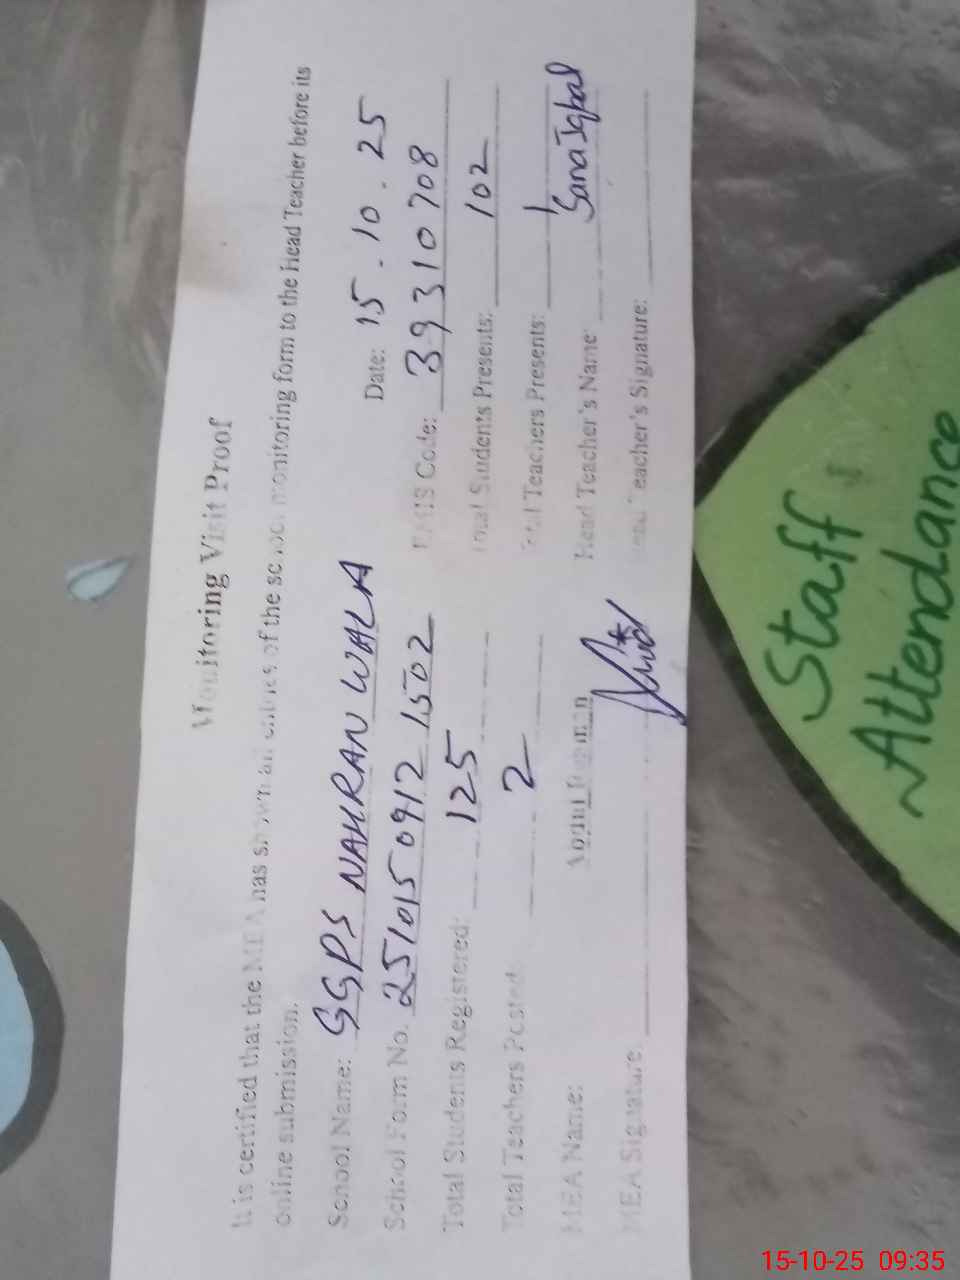 Monitoring Visit Proof
It is certified that the MEA has shown all entries of the school monitoring form to the Head Teacher before its
online submission.
Date: 15.10.25
School Name: GGPS NAHRAN WALA
EMIS Code: 39310708
School Form No. 2510150912 1502
Total Students Presents: 102
Total Students Registered: 125
Total Teachers Presents: 1
Total Teachers Posted: 2
Head Teacher's Name: Sana Iqbal
MEA Name: Abdul Rehman
Head Teacher's Signature:
MEA Signature:
Staff
Attendance
15-10-25 09:35